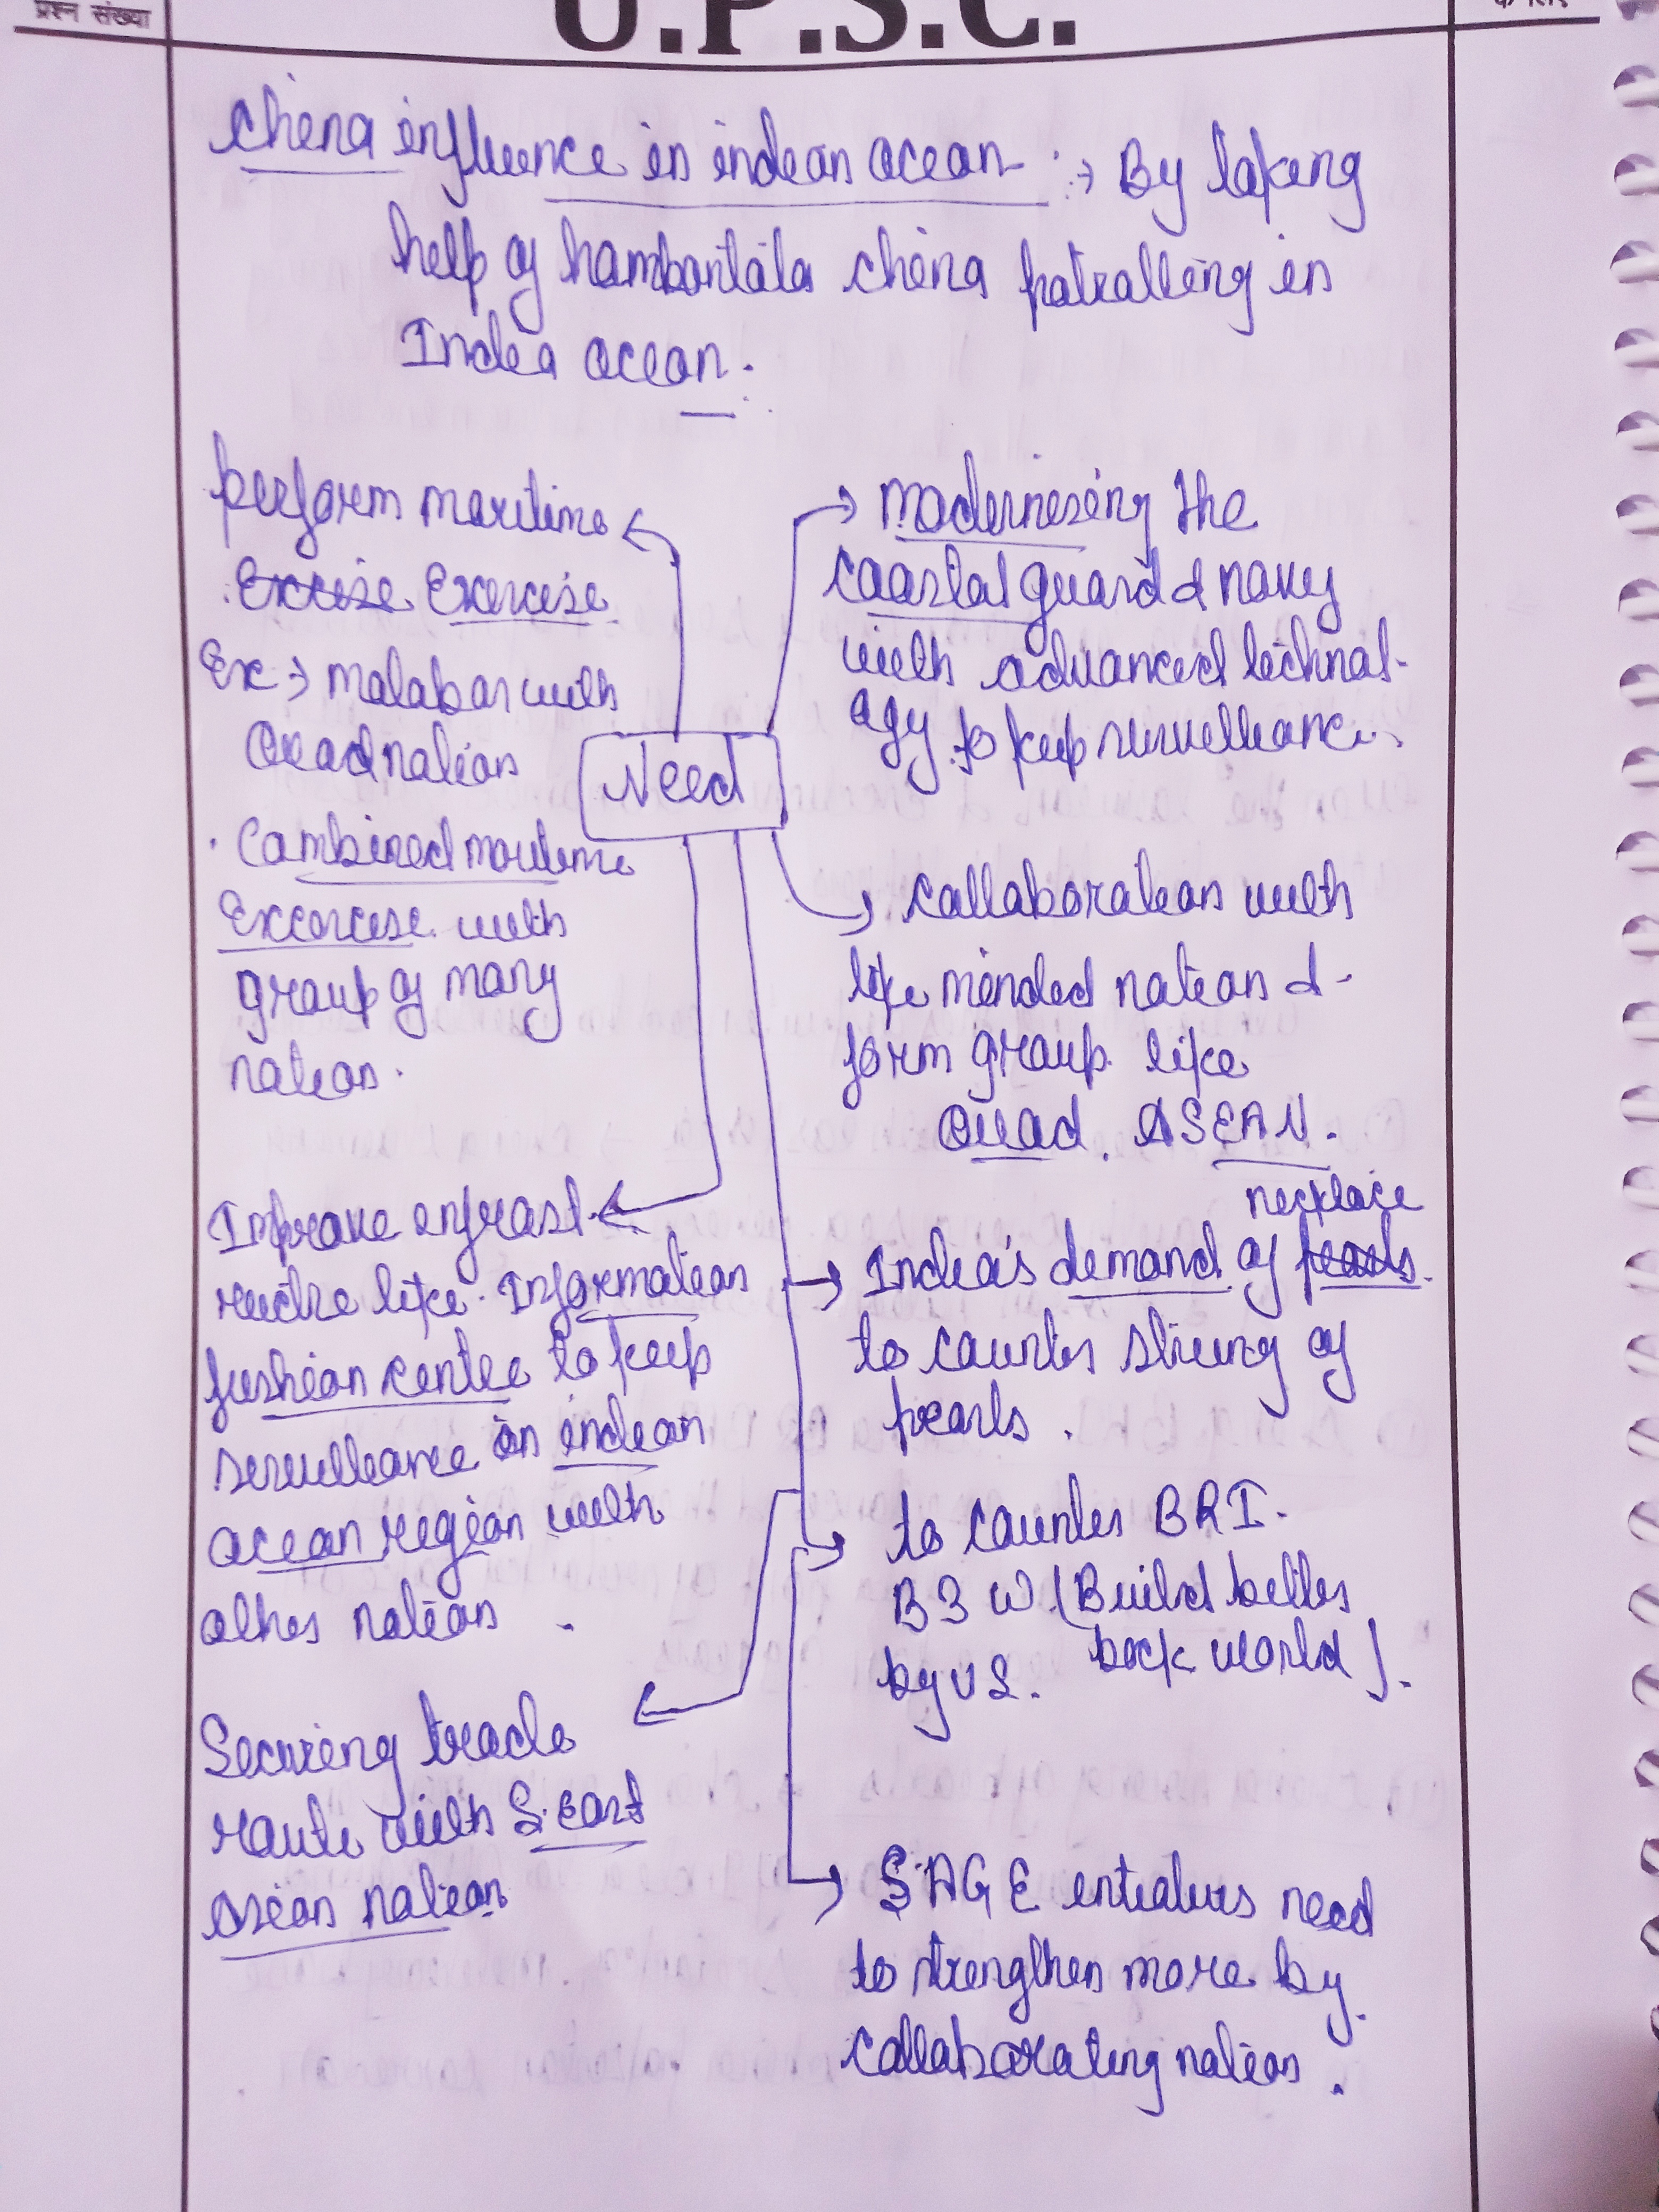 प्रश्न संख्या
U.P.S.C.
के लिए
China influence in indean ocean :→ By taking
help of hambantata china patralling in
Indea ocean.
perform maritime
Excise Exercise
Ex → malabar with
Quad nation
Combined maritime
Excercise with
group of many
nation.
Improve infrast-
ructre like Information
fushion centre to keep
serveillance on indean
ocean region with
other nation.
Securing trade
route with S.East
Asian nation
Need
→ modernising the
coastal guard & navy
with advanced technol-
ogy to keep survellance.
→ Collaboration with
like minded nation &
form group like
Quad, ASEAN.
necklace
→ Indea's demand of pearls
to counter string of
pearls.
→ to counter BRI.
B3W (Build better
by US. back world).
→ SAGE need
to strengthen more by
collaborating nation.